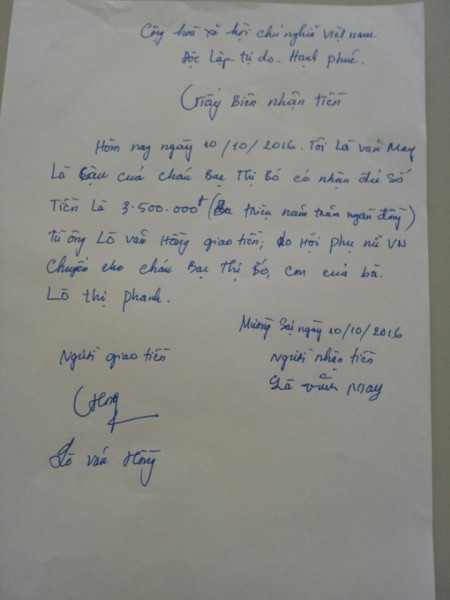 Cộng hoà xã hội chủ nghĩa Việt nam
Độc lập - tự do - Hạnh phúc.
Giấy Biên nhận tiền
Hôm nay ngày 10/10/2016. Tôi Là văn May
Là cậu của cháu Bạc Thị Bó có nhận đủ số
Tiền là 3.500.000đ (Ba triệu năm trăm ngàn đồng)
Từ ông Lò văn Hồng giao tiền; do Hội phụ nữ VN
chuyển cho cháu Bạc Thị Bó, con của bà.
Lò thị phanh.
Mường Sại ngày 10/10/2016
Người giao tiền
Người nhận tiền
Hồng
Là văn May
Lò văn Hồng